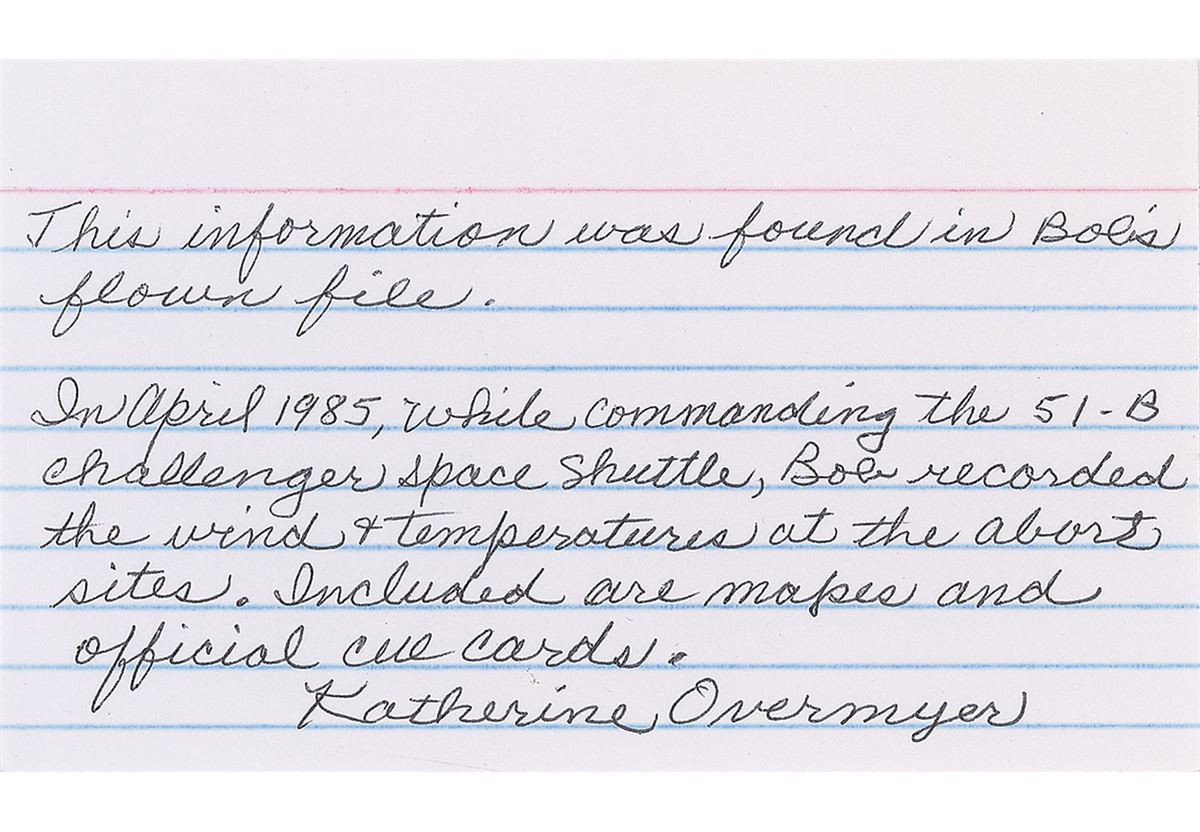 This information was found in Bob's
flown file.
In April 1985, while commanding the 51-B
Challenger space Shuttle, Bob recorded
the wind & temperatures at the abort
sites. Included are mapes and
official cue cards.
Katherine Overmyer